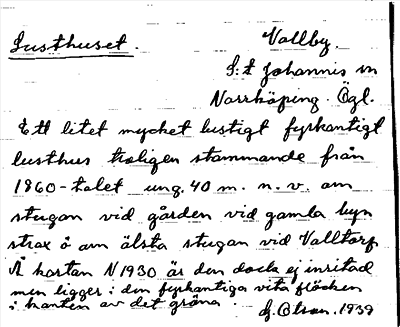 Lusthuset.
Vallby.
S:t Johannis sn
Norrköping. Ögl.
Ett litet mycket lustigt fyrkantigt
lusthus troligen stammande från
1860-talet ung. 40 m. n. v. om
stugan vid gården vid gamla byn
strax ö om älsta stugan vid Valltorp
Å kartan N 1930 är den dock ej inritad
men ligger i den fyrkantiga vita fläcken
i kanten av det gröna. G. Olson. 1939